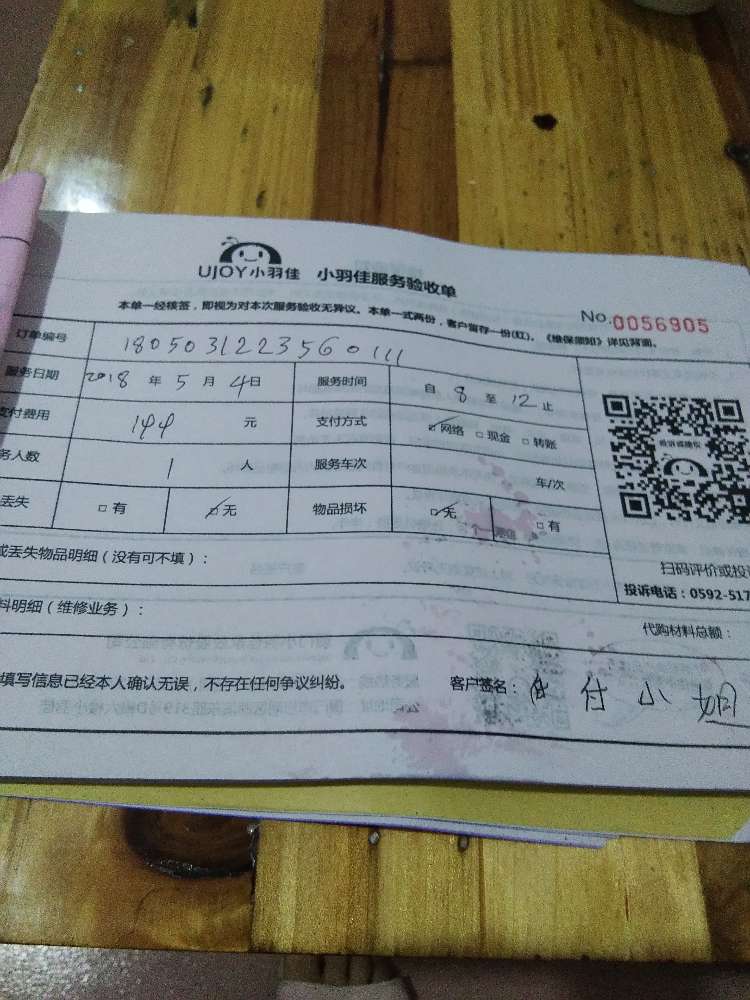 UJOY小羽佳 小羽佳服务验收单
本单一经核签，即视为对本次服务验收无异议。本单一式两份，客户留存一份(红)。《维保须知》详见背面。
No.0056905
订单编号 1805031223560111
服务日期 2018 年 5 月 4日 服务时间 自 8 至 12 止
支付费用 144 元 支付方式 ☑网络 □现金 □转账
务人数 1 人 服务车次 车/次
丢失 □有 ☑无 物品损坏 ☑无 □有
或丢失物品明细（没有可不填）：
料明细（维修业务）：
代购材料总额：
扫码评价或投诉
投诉电话：0592-517
填写信息已经本人确认无误，不存在任何争议纠纷。 客户签名： 付小姐